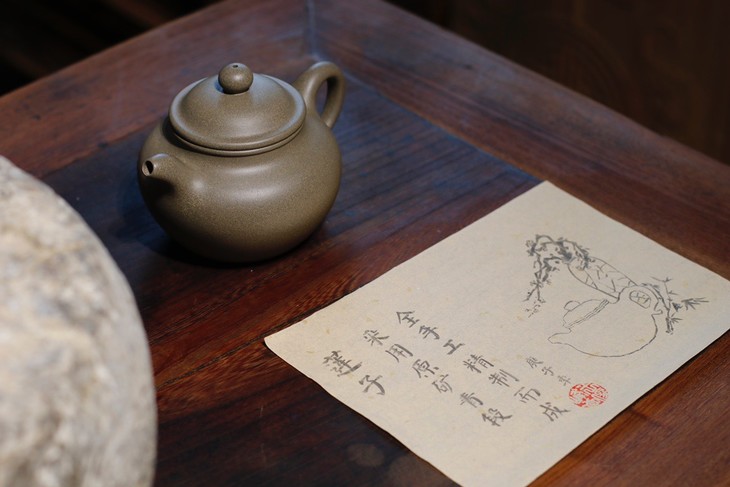 莲子
采用原矿青段
全手工精制而成
庚子年